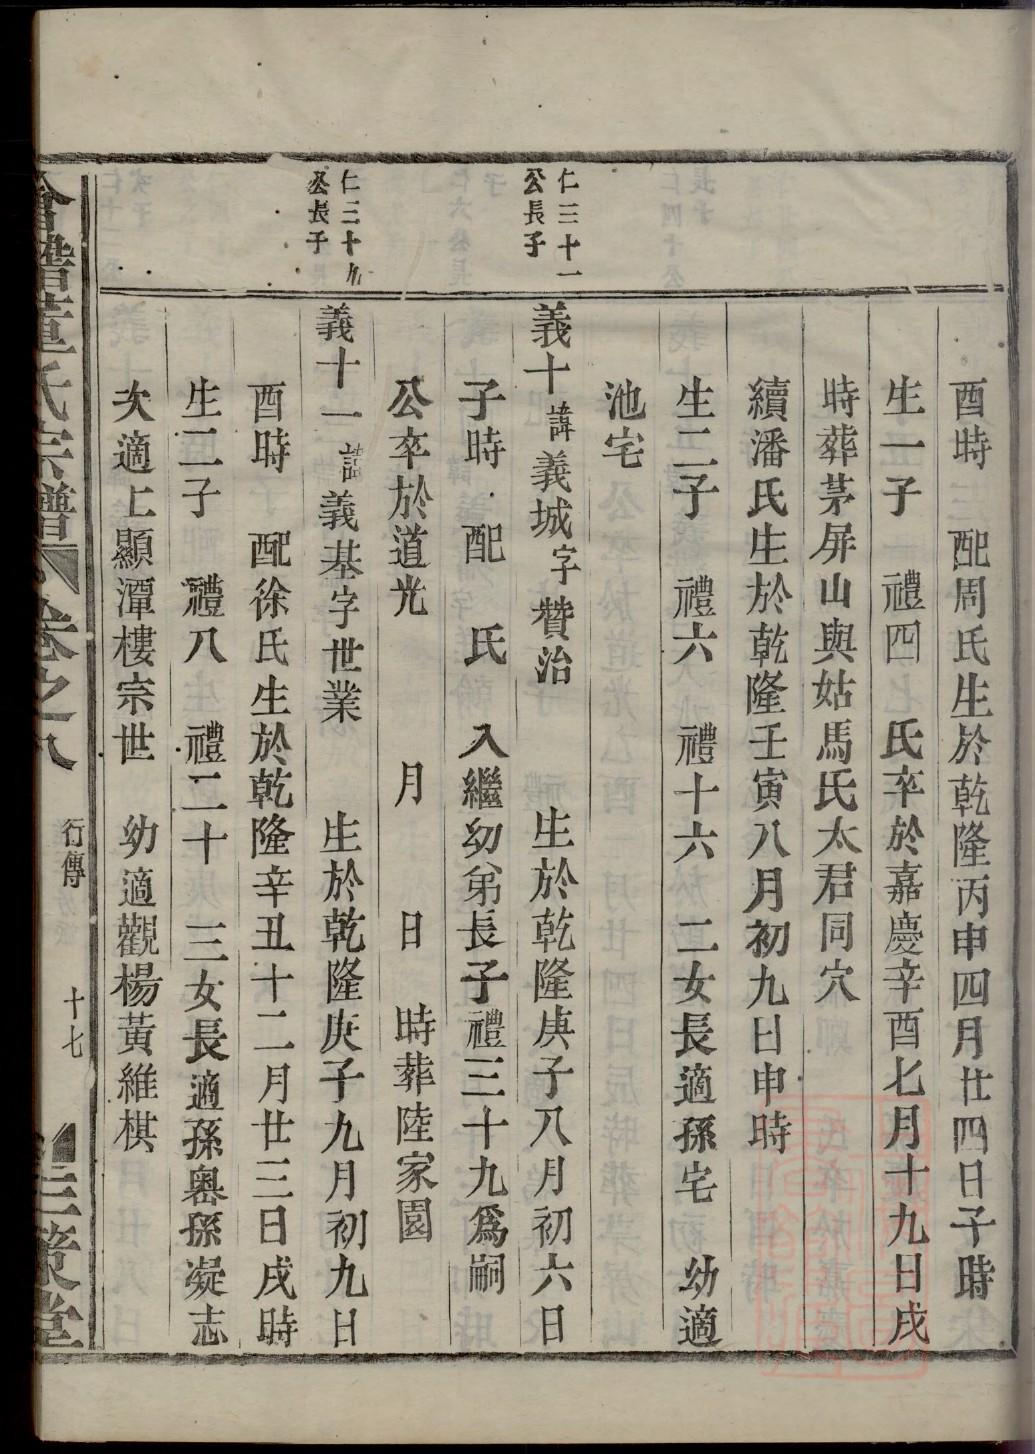 酉時　配周氏生於乾隆丙申四月廿四日子時
生一子　禮四　氏卒於嘉慶辛酉七月十九日戌
時葬茅屏山與姑馬氏太君同穴
續潘氏生於乾隆壬寅八月初九日申時
生二子　禮六　禮十六　二女長適孫宅　幼適
池宅
仁三十一
公長子
義十諱義城字贊治　生於乾隆庚子八月初六日
子時　配　氏　入繼幼弟長子禮三十九爲嗣
公卒於道光　月　日　時葬陸家園
仁三十九
公長子
義十一諱義基字世業　生於乾隆庚子九月初九日
酉時　配徐氏生於乾隆辛丑十二月廿三日戌時
生二子　禮八　禮二十　三女長適孫嶴孫凝志
次適上顯潭樓宗世　幼適觀楊黃維棋
會稽董氏宗譜　卷之八　行傳　十七　三策堂